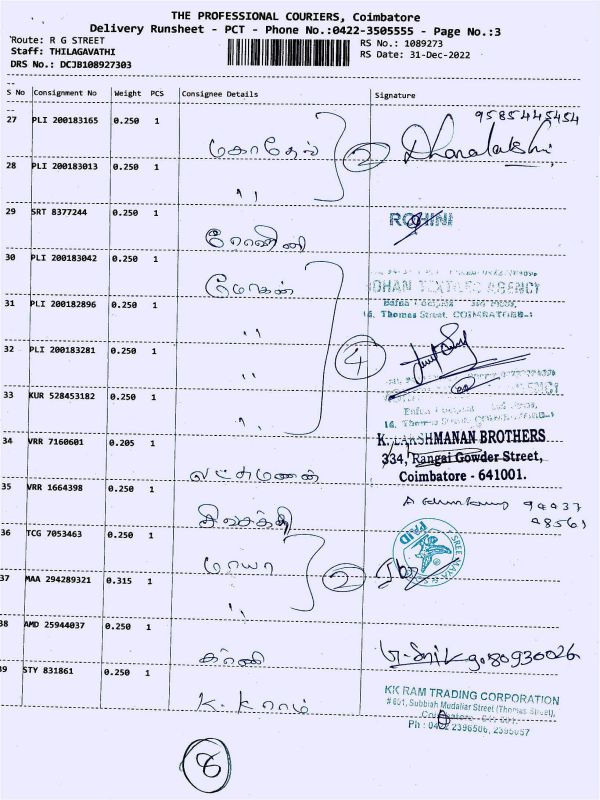 THE PROFESSIONAL COURIERS, Coimbatore
Delivery Runsheet - PCT - Phone No.:0422-3505555 - Page No.:3
Route: R G STREET
RS No.: 1089273
Staff: THILAGAVATHI
RS Date: 31-Dec-2022
DRS No.: DCJB108927303
S No Consignment No Weight PCS Consignee Details Signature
27 PLI 200183165 0.250 1 மகாதேவ் 2 Dhanalakshmi 9585445454
28 PLI 200183013 0.250 1 ,,
29 SRT 8377244 0.250 1 ரோஹிணி ROHINI
30 PLI 200183042 0.250 1 மோகன் 4
31 PLI 200182896 0.250 1 ,,
TEXTILES AGENCY
16, Thomas Street, COIMBATORE-1
32 PLI 200183281 0.250 1 ,,
33 KUR 528453182 0.250 1 ,,
16, Thomas Street
34 VRR 7160601 0.205 1 லட்சுமணன்
K. LAKSHMANAN BROTHERS
334, Rangai Gowder Street,
Coimbatore - 641001.
35 VRR 1664398 0.250 1 சிவசக்தி
36 TCG 7053463 0.250 1 மாயா 2
PAID
37 MAA 294289321 0.315 1 ,,
38 AMD 25944037 0.250 1
39 STY 831861 0.250 1 K. K ராம்
KK RAM TRADING CORPORATION
# 651, Subbiah Mudaliar Street (Thomas Street),
Coimbatore - 641 001.
Ph : 0422 2396506, 2395657
8